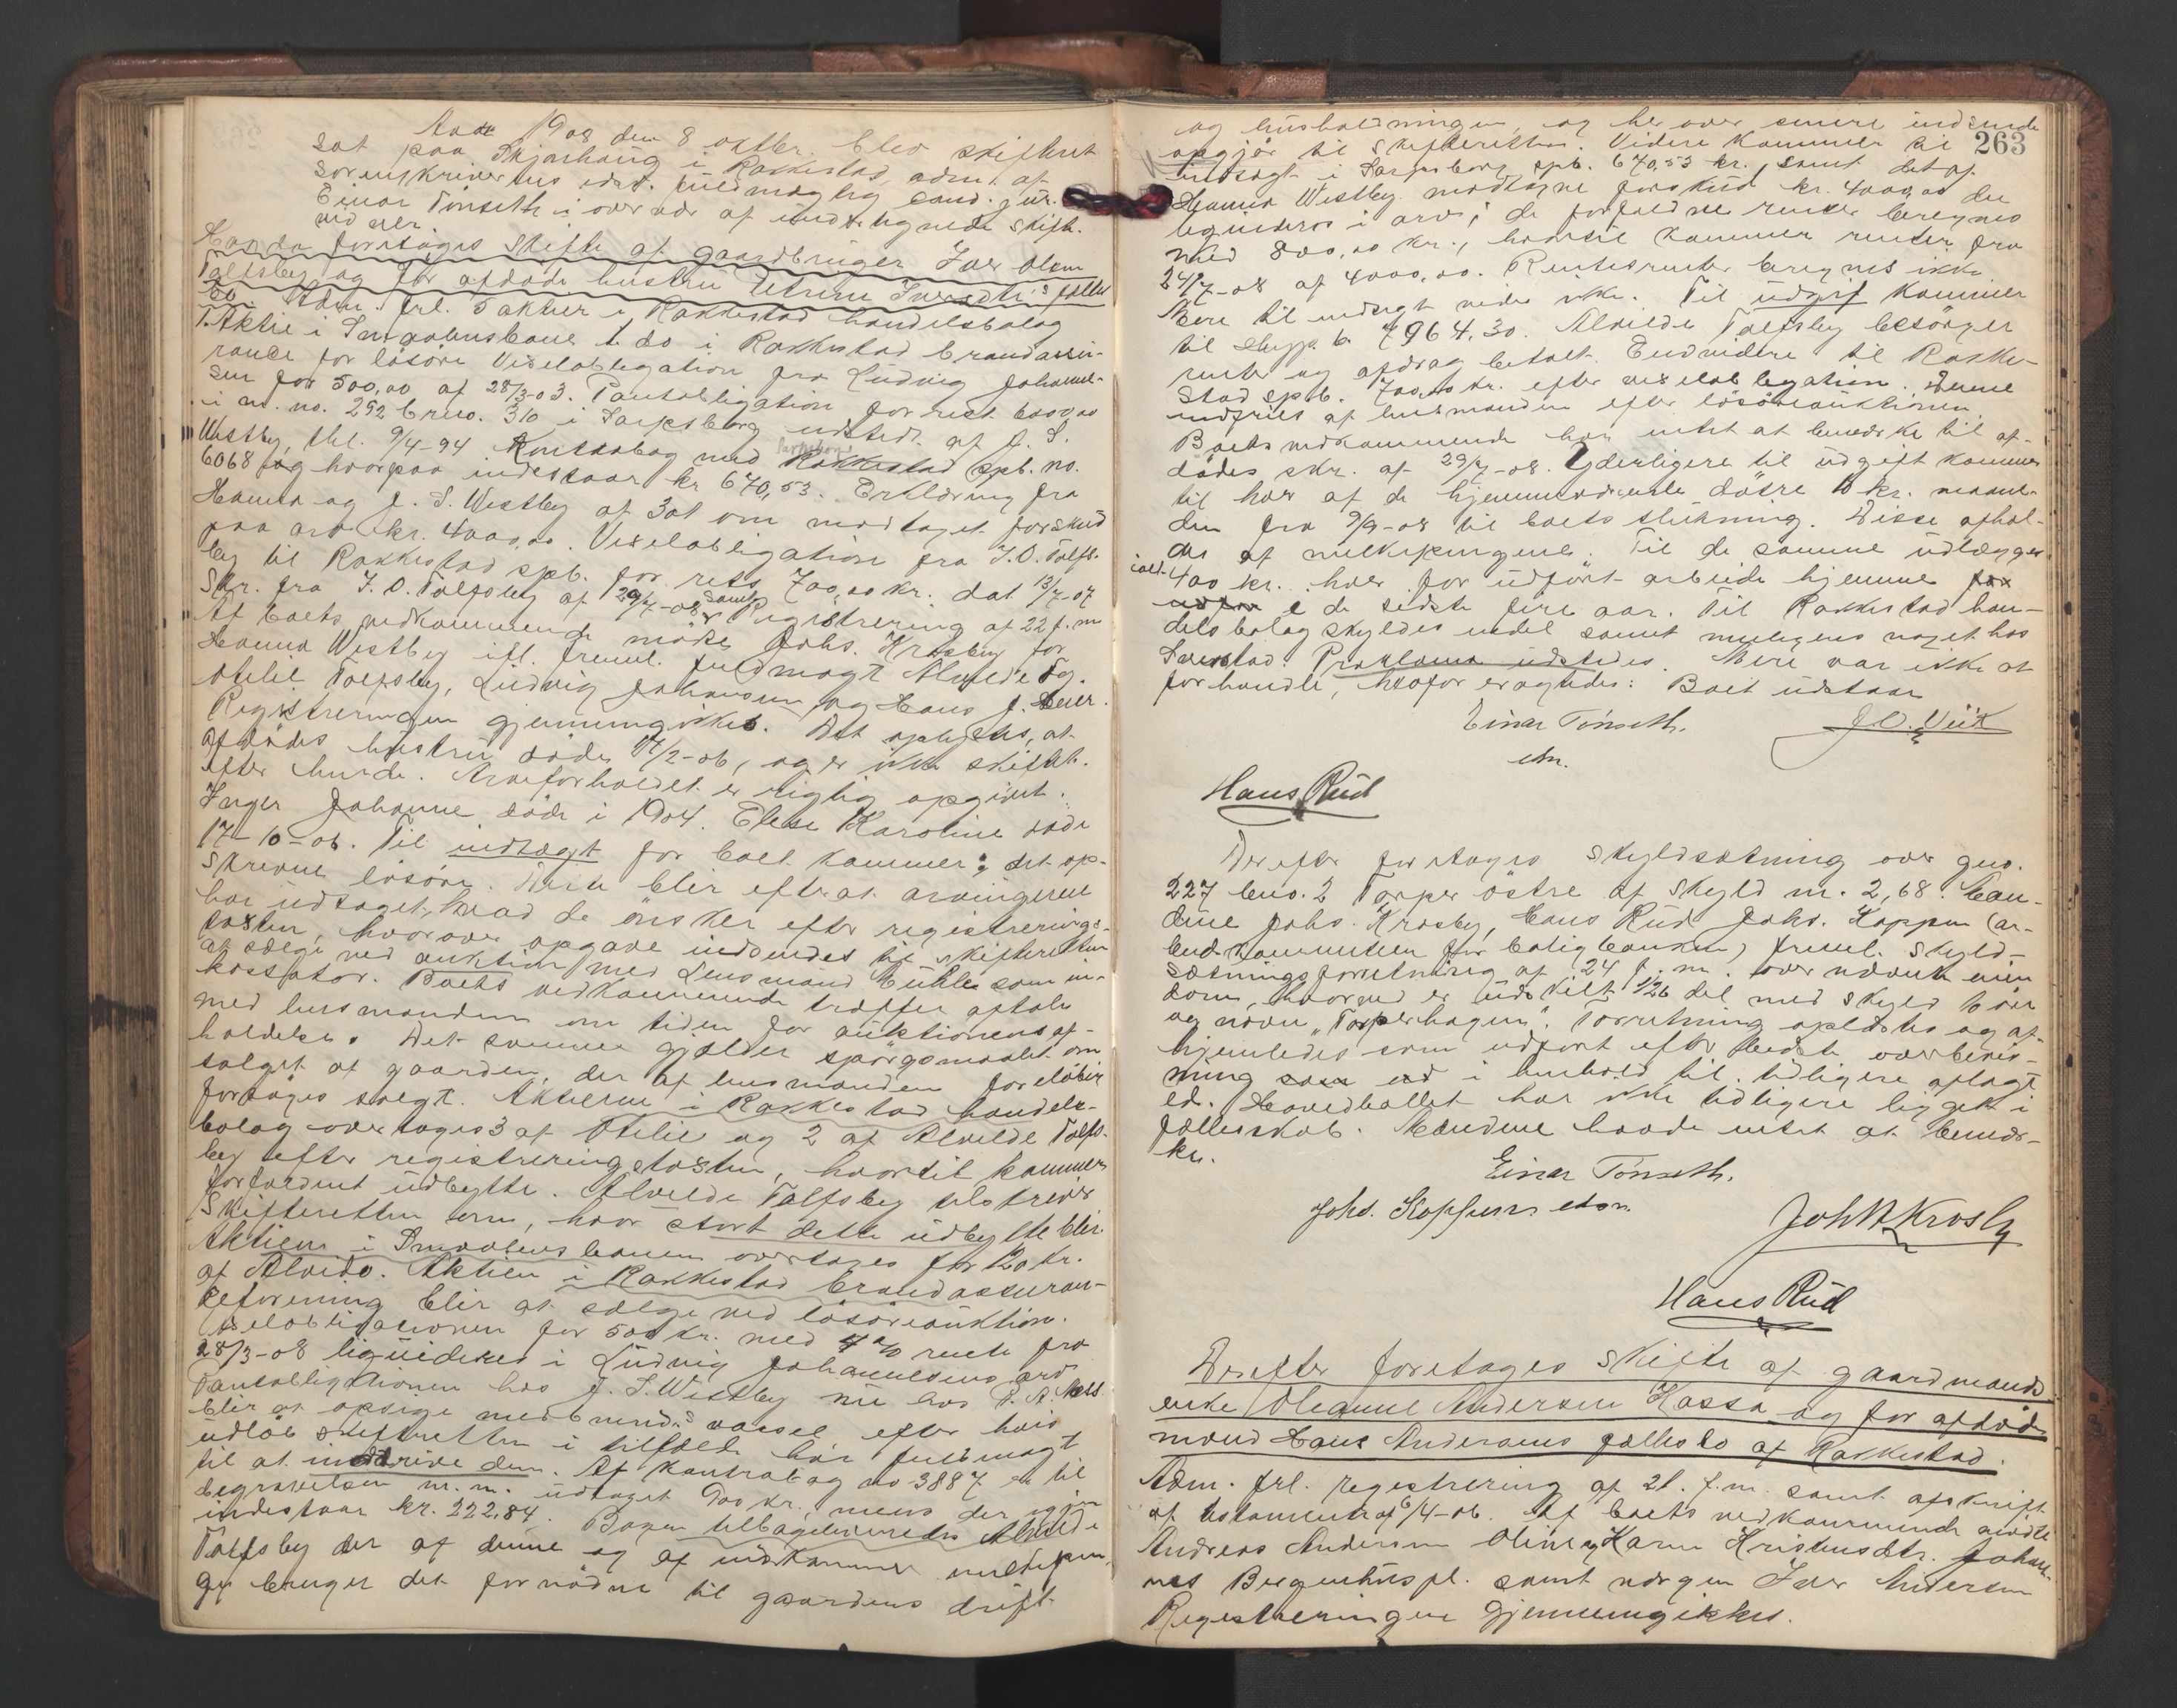 Aar 1908 den 8 oktbr. blev skifteret
sat paa Skjørshaug i Rakkestad, adm. af
sorenskriverens edsv. fuldmægtig cand. jur.
Einar Tønseth i overvær af undertegnede skifte-
vidner.
Hvorda foretoges skifte af gaardbruger Iver Olsen
Tolfsby og før afdøde hustru Iversdtr.s fælles
bo. Adm. frl. 5 aktier i Rakkestad handelsbolag
1 Aktie i Smaalensbane 1 do i Rakkestad brandassu-
rance for løsøre Vexelobligation fra Ludvig Johannes-
sen for 500,00 af 28/3-03. Pantobligation for rest 6000,00
i m. no. 292 brno. 310 i Sarpsborg udstedt af J. S.
Westby, thl. 9/4-94 Kontrabog med Rakkestad Sarpsborg spb. no.
6068 hvorpaa indestaar kr 670,53. Erklæring fra
Hanna og J. S. Westby af 3at om modtaget forskud
paa arv kr. 4000,00. Vexelobligation fra I.O. Tolfs-
by til Rakkestad spb. for rets 700,00 kr. dat 13/7-07
Skr. fra I. O. Tolfsby af 29/7-08 samt Registrering af 22 f. m
Af boets vedkommende mødte Johs. Krosby for
Hanna Westby ifl. freml. fuldmagt Alvilde og
Otelie Tolfsby, Ludvig Johansen og Hans J.
Registreringen gjennemgikkes. Det oplystes, at
afdødes hustru døde 17/2-06, og er ikke skiftet
efter hende. Arveforholdet er rigtig opgivet.
Inger Johanne døde i 1904. Elise Karoline døde
17-10-06. Til indtægt for boet kommer: det op-
skrevne løsøre. Dette blir efterat arvingerne
har udtaget, hvad de ønsker efter registrerings-
taxten, hvorover opgave indsendes til skifteretten
at sælge ved auktion med Lensmand Buhler som in-
kassator. Boets vedkommende træffer aftale
med lensmanden om tiden for auktionens af-
holdelse. Det samme gjælder spørgsmaalet om
salget af gaarden, der af lensmanden foreløbig
forsøges solgt. Aktierne i Rakkestad handels-
bolag overtages 3 af Otelie og 2 af Alvilde Tolfs-
by efter registreringstaxten, hvortil kommer
forfaldent udbytte. Alvilde Tolfsby tilskriver
Skifteretten om, hvor stort dette udbytte blir.
Aktien i Smaalensbanen overtages for 120 kr.
af Alvilde. Aktien i Rakkestad brandassuran-
ceforening blir at sælge ved løsøreauktion.
Vexelobligationen for 500 kr. med 4 % rente fra
28/3-08 liquideres i Ludvig Johannesens arv
Pantobligationen hos J. S. Westby nu hos P. A. Næss
blir at opsige med 6 mnds varsel efter hvis
udløb skifteretten i tilfælde har fuldmagt
til at inddrive den. Af kontrabog no 3887 er til
begravelsen m. m. udtaget 900 kr., mens der igjen
indestaar kr. 222,84. Bogen tilbageleveredes Alvilde
Tolfsby der af denne og af indkomne melkepen-
ger bruger det fornødne til gaardens drift
263
og husholdningen, og her over senere indsende
opgjør til skifteretten. Videre kommer til
indtægt i Sarpsborg spb. 670,53 kr. samt det af
Hanna Westby modtagne forskud kr. 4000,00 der
liquideres i arv; de forfaldne renter beregnes
med 800,00 kr., hvortil kommer renter fra
24/7-08 af 4000,00. Rentesrenter beregnes ikke.
Mere til indtægt vides ikke. Til udgift kommer
til Hypb. 7964,30. Alvilde Tolfsby besørger
renter og afdrag betalt. Endvidere til Rakke-
stad spb. 700,00 kr. efter vexelobligation. Denne
indfries af lensmanden efter løsøreauktionen.
Boets vedkommende har intet at bemærke til af-
dødes skr. af 29/7-08. Yderligere til udgift kommer
til hver af de hjemmeværende døtre 10 kr. maane-
den fra 9/9-08 til boets slutning. Disse afhol-
des af melkepengene. Til de samme udlægges
ialt 400 kr. hver for udført arbeide hjemme for
udfør i de sidste fire aar. Til Rakkestad han-
delsbolag skyldes endel samt muligens noget hos
Proklama udstedes. Mere var ikke at
forhandle, hvorfor eragtedes: Boet udstaar
Einar Tønseth. J. O. Viik
edsv.
Hans Rud
Derefter foretoges skyldsætning over gno.
227 bno. 2 Torper østre af skyld m. 2,68. Mæn-
dene Johs. Krosby, Hans Rud Johs. Koppen (ar-
beidskommiteen for boligbanken) freml. skyld-
sætningsforretning af 24 f. m. over nævnte eien-
dom, hvorved er udskilt 1/26 del med skyld 10 øre
og navn "Torperhagen". Forretning oplæstes og af-
hjemledes som udført efter bedste overbevis-
ning som ed i henhold til tidligere aflagt
ed. Hovedbøllet har ikke tidligere ligget i
fællesskab. Mændene havde intet at bemær-
ke.
Einar Tønseth.
Johs. Koppen edsv. Joh N Krosby
Hans Rud
Derefter foretoges skifte af gaardmands
enke Oleanne Andersen Kassa og før afdøde
mand Hans Andersens fællesbo af Rakkestad.
Adm. frl. registrering af 21. f. m. samt afskrift
af testamente af 6/4-06. Af boets vedkommende mødte
Andreas Andersen Oline Karen Kristensdtr. Johan-
nes Bergenhuspl. samt værgen Iver Andersen
Registreringen gjennemgikkes.